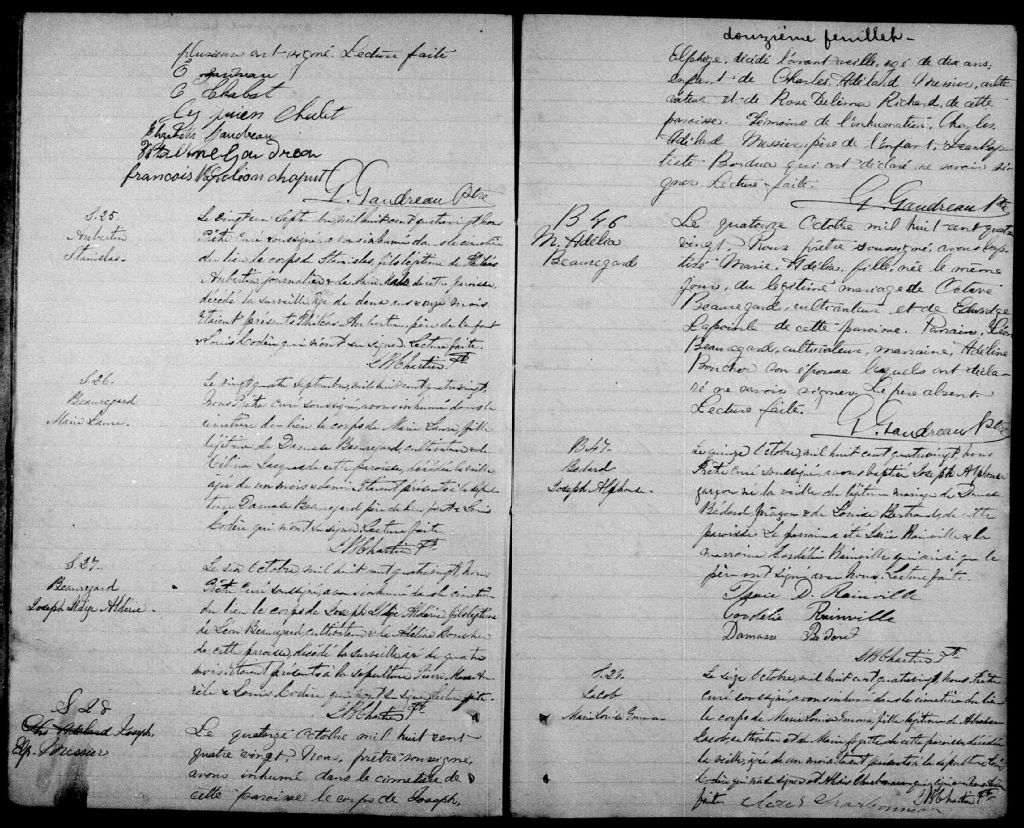 plusieurs ont signé. Lecture faite
E
E Chabot
Cyprien
Gaudreau
francois Napoléon
G. Gaudreau Ptre
S. 25
Aubertin
Stanislas.
Le vingt un Septembre mil huit cent quatre vingt, nous
Prêtre Curé soussigné avons inhumé dans le cimetière
du lieu le corps de Stanislas, fils légitime de
Aubertin journalier & de Marie de cette paroisse,
décédé la surveille âgé de deux ans onze mois.
Etaient présents Aubertin, père de l'enfant
& Louis Codin qui n'ont su signer. Lecture faite.
Chartier Ptre
S. 26.
Beauregard
Marie Laure.
Le vingt quatre septembre, mil huit cent quatre vingt,
nous Prêtre Curé soussigné, avons inhumé dans le
cimetière du lieu le corps de Marie Laure, fille
légitime de Damase Beauregard, cultivateur & de
Célina Jacques de cette paroisse, décédée la veille
âgée de un mois & demi. Etaient présents à la sépul-
ture Damase Beauregard père de l'enfant & Louis
Codin qui n'ont su signer. Lecture faite
Chartier Ptre
S. 27.
Beauregard
Joseph Aldéric.
Le six Octobre mil huit cent quatre vingt, nous
Prêtre Curé soussigné, avons inhumé dans le cimetière
du lieu le corps de Joseph Aldéric, fils légitime
de Léon Beauregard, cultivateur & de Adéline Boucher
de cette paroisse, décédé la surveille âgé de quatre
mois. Etaient présents à la sépulture Pierre
& Louis Codin qui n'ont su signer. Lecture faite.
Chartier Ptre
S 28
Joseph.
Elp. Messier
Le quatorze Octobre mil huit cent
quatre vingt. Nous, prêtre soussigné,
avons inhumé dans le cimetière de
cette paroisse le corps de Joseph,
douzième feuillet
Elphège, décédé l'avant veille, âgé de dix ans,
enfant de Charles Adélard Messier, culti-
vateur et de Rose Delima Richard, de cette
paroisse. Témoins de l'inhumation, Charles
Adélard Messier père de l'enfant, & Jean Bap-
tiste Bordua qui ont déclaré ne savoir si-
gner. Lecture faite.
G. Gaudreau Ptre
B 46
M. Adélia
Beauregard
Le quatorze Octobre mil huit cent quatre
vingt. Nous prêtre soussigné, avons bap-
tisé Marie, Adélia, fille, née le même
jour, du légitime mariage de Octave
Beauregard, cultivateur et de Edwidge
Lapointe de cette paroisse. Parrain, Léon
Beauregard, cultivateur, marraine, Adéline
Boucher son épouse lesquels ont décla-
ré ne savoir signer. Le père absent.
Lecture faite.
G. Gaudreau Ptre
B 47.
Bédard
Joseph Alphonse.
Le quinze Octobre, mil huit cent quatre vingt, nous
Prêtre Curé soussigné, avons baptisé Joseph Alphonse
garçon né la veille du légitime mariage de Damase
Bédard & de Louise Bertrand de cette
paroisse. Le parrain a été Rainville & la
marraine Cordélie Rainville qui ainsi que le
père ont signé avec nous. Lecture faite.
D. Rainville
Cordélie Rainville
Damase Bédard
Chartier Ptre
S. 29.
Jacob
Marie Louise Emma.
Le seize Octobre, mil huit cent quatre vingt, nous, Prêtre
Curé soussigné, avons inhumé dans le cimetière du lieu
le corps de Marie Louise Emma fille légitime de Abraham
Jacob, cultivateur et de Marie de cette paroisse, décédée
la veille, âgée de un mois. Etaient présents à la sépulture Louis
Codin qui n'a su signer et Charbonneau qui a signé avec nous. Lecture
faite Charbonneau Chartier Ptre